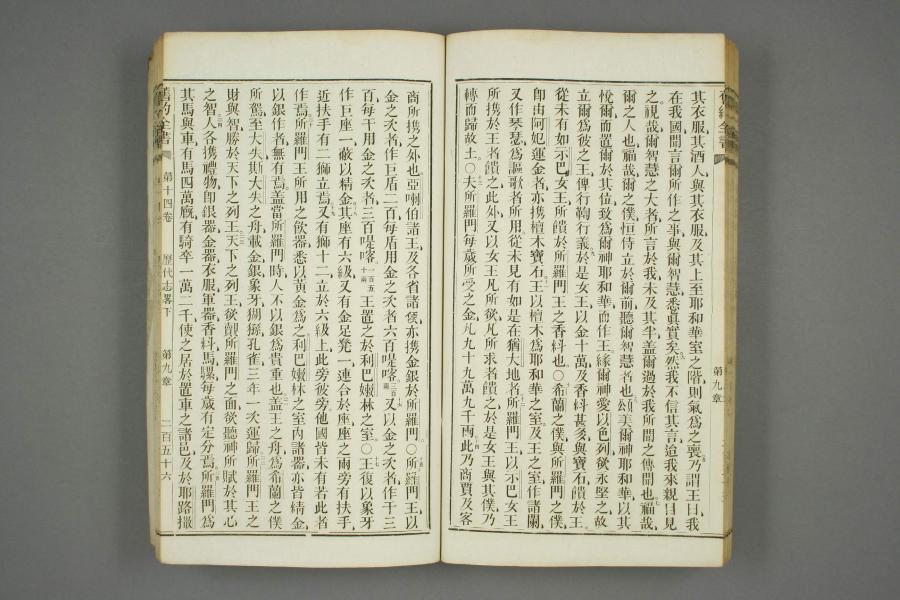 第九章
其衣服其酒人與其衣服及其上至耶和華室之階則氣爲之喪乃謂王曰我
在我國間言爾所作之事與爾智慧悉眞實矣然我不信其言迨我來親目見
之視哉爾智慧之大者所言於我未及其半蓋爾過於我所聞之傳聞也福哉
爾之人也福哉爾之僕恒侍立於爾前聽爾智慧者也頌美爾神耶和華以其
悅爾而置爾於其位致爲爾神耶和華而作王緣爾神愛以色列欲永堅之故
立爾爲彼之王俾行鞫行義於是女王以金十萬及香料甚多與寶石饋於王
從未有如示巴女王所饋於所羅門王之香料也〇希蘭之僕與所羅門之僕
卽由阿妃運金者亦携檀木寶石王以檀木爲耶和華之室及王之室作諸闌
又作琴瑟爲謳歌者所用從未見有如是在猶大地者所羅門王以示巴女王
所携於王者饋之此外又以女王凡所欲凡所求者饋之於是女王與其僕乃
轉而歸故土〇夫所羅門每歲所受之金凡九十九萬九千兩此乃商賈及客
商所携之外也亞喇伯諸王及各省諸侯亦携金銀於所羅門〇所羅門王以
金之次者作巨盾二百每盾用金之次者六百喼喀又以金之次者作干三
百每干用金之次者三百喼喀王置之於利巴嫩林之室〇王復以象牙
作巨座一蔽以精金其座有六級又有金足凳一連合於座座之兩旁有扶手
近扶手有二獅立焉又有獅十二立於六級上此旁彼旁他國皆未有若此者
作焉所羅門王所用之飲器悉以黃金爲之利巴嫩林之室內諸器亦皆精金
以銀作者無有焉蓋當所羅門時人不以銀爲貴重也蓋王之舟爲希蘭之僕
所駕至大失斯大失之舟載金銀象牙猢猻孔雀三年一次運歸所羅門王之
財與智勝於天下之列王天下之列王欲覿所羅門之面欲聽神所賦於其心
之智人各携禮物卽銀器金器衣服軍器香料馬騾每歲有定分焉所羅門爲
其馬與車有馬四萬廐有騎卒一萬二千使之居於置車之諸邑及於耶路撒
舊約全書
第十四卷
歷代志畧下
第九章
二百五十六